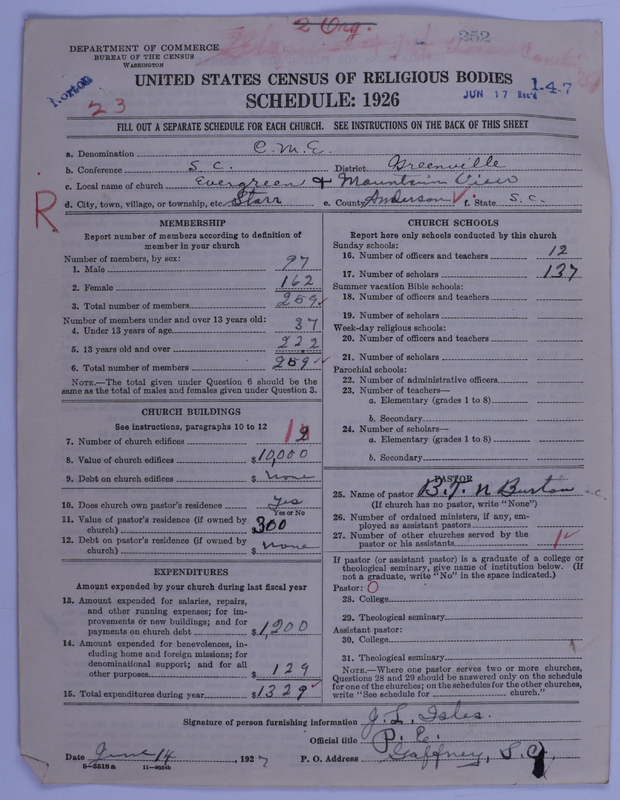 2 Org.
252
DEPARTMENT OF COMMERCE
BUREAU OF THE CENSUS
WASHINGTON
Norton
23
UNITED STATES CENSUS OF RELIGIOUS BODIES
SCHEDULE: 1926
JUN 17 Rec'd
1-4-7
FILL OUT A SEPARATE SCHEDULE FOR EACH CHURCH. SEE INSTRUCTIONS ON THE BACK OF THIS SHEET
a. Denomination C.M.E.
b. Conference S. C. District Greenville
c. Local name of church Evergreen & Mountain View
d. City, town, village, or township, etc. Starr e. County Anderson ✓ f. State S. C.
R
MEMBERSHIP
Report number of members according to definition of member in your church
Number of members, by sex:
1. Male 97
2. Female 162
3. Total number of members 259 ✓
Number of members under and over 13 years old:
4. Under 13 years of age 37
5. 13 years old and over 222
6. Total number of members 259 ✓
NOTE.—The total given under Question 6 should be the
same as the total of males and females given under Question 3.
CHURCH BUILDINGS
See instructions, paragraphs 10 to 12
7. Number of church edifices 1 2
8. Value of church edifices $10,000
9. Debt on church edifices $ none
10. Does church own pastor's residence yes
Yes or No
11. Value of pastor's residence (if owned by
church) $ 300
12. Debt on pastor's residence (if owned by
church) $ none
EXPENDITURES
Amount expended by your church during last fiscal year
13. Amount expended for salaries, repairs,
and other running expenses; for im-
provements or new buildings; and for
payments on church debt $1,200
14. Amount expended for benevolences, in-
cluding home and foreign missions; for
denominational support; and for all
other purposes $ 129
15. Total expenditures during year $1329 ✓
CHURCH SCHOOLS
Report here only schools conducted by this church
Sunday schools:
16. Number of officers and teachers 12
17. Number of scholars 137
Summer vacation Bible schools:
18. Number of officers and teachers
19. Number of scholars
Week-day religious schools:
20. Number of officers and teachers
21. Number of scholars
Parochial schools:
22. Number of administrative officers
23. Number of teachers—
a. Elementary (grades 1 to 8)
b. Secondary
24. Number of scholars—
a. Elementary (grades 1 to 8)
b. Secondary
PASTOR
25. Name of pastor B. T. N Burton
(If church has no pastor, write "None")
26. Number of ordained ministers, if any, em-
ployed as assistant pastors
27. Number of other churches served by the
pastor or his assistants 1 ✓
If pastor (or assistant pastor) is a graduate of a college or
theological seminary, give name of institution below. (If
not a graduate, write "No" in the space indicated.)
Pastor: O
28. College
29. Theological seminary
Assistant pastor:
30. College
31. Theological seminary
NOTE.—Where one pastor serves two or more churches,
Questions 28 and 29 should be answered only on the schedule
for one of the churches; on the schedules for the other churches,
write "See schedule for church."
Signature of person furnishing information J. L. Isles.
Official title P. E.
Date June 14, 1927 P. O. Address Gaffney, S. C.
8-5518a 11-9054b